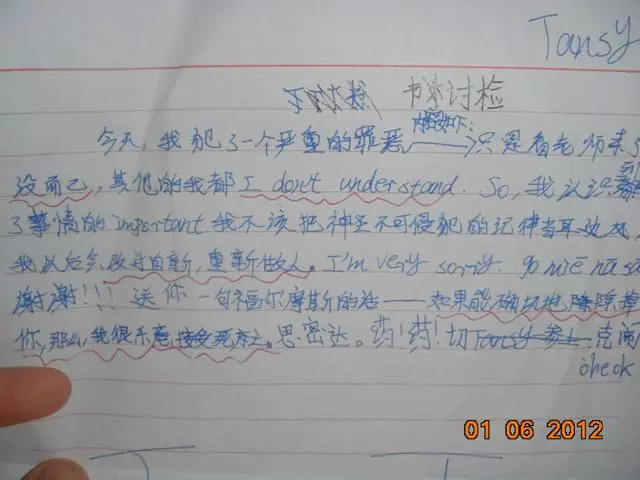 Tansy
书讨检
内容如下:
今天,我犯了一个严重的罪恶——只是看老师来了
没而已,其他的我都I don't understand. So,我认识到
了事情的important.我不该把神圣不可侵犯的纪律当耳边风,
我以后会改过自新,重新做人。I'm very sorry. go mie na sa
谢谢!!!送你一句福尔摩斯的话——如果能确切地除掉
你,那么我很乐意接受死亡。思密达。药!药!切Tansy参上克闹
check
01 06 2012